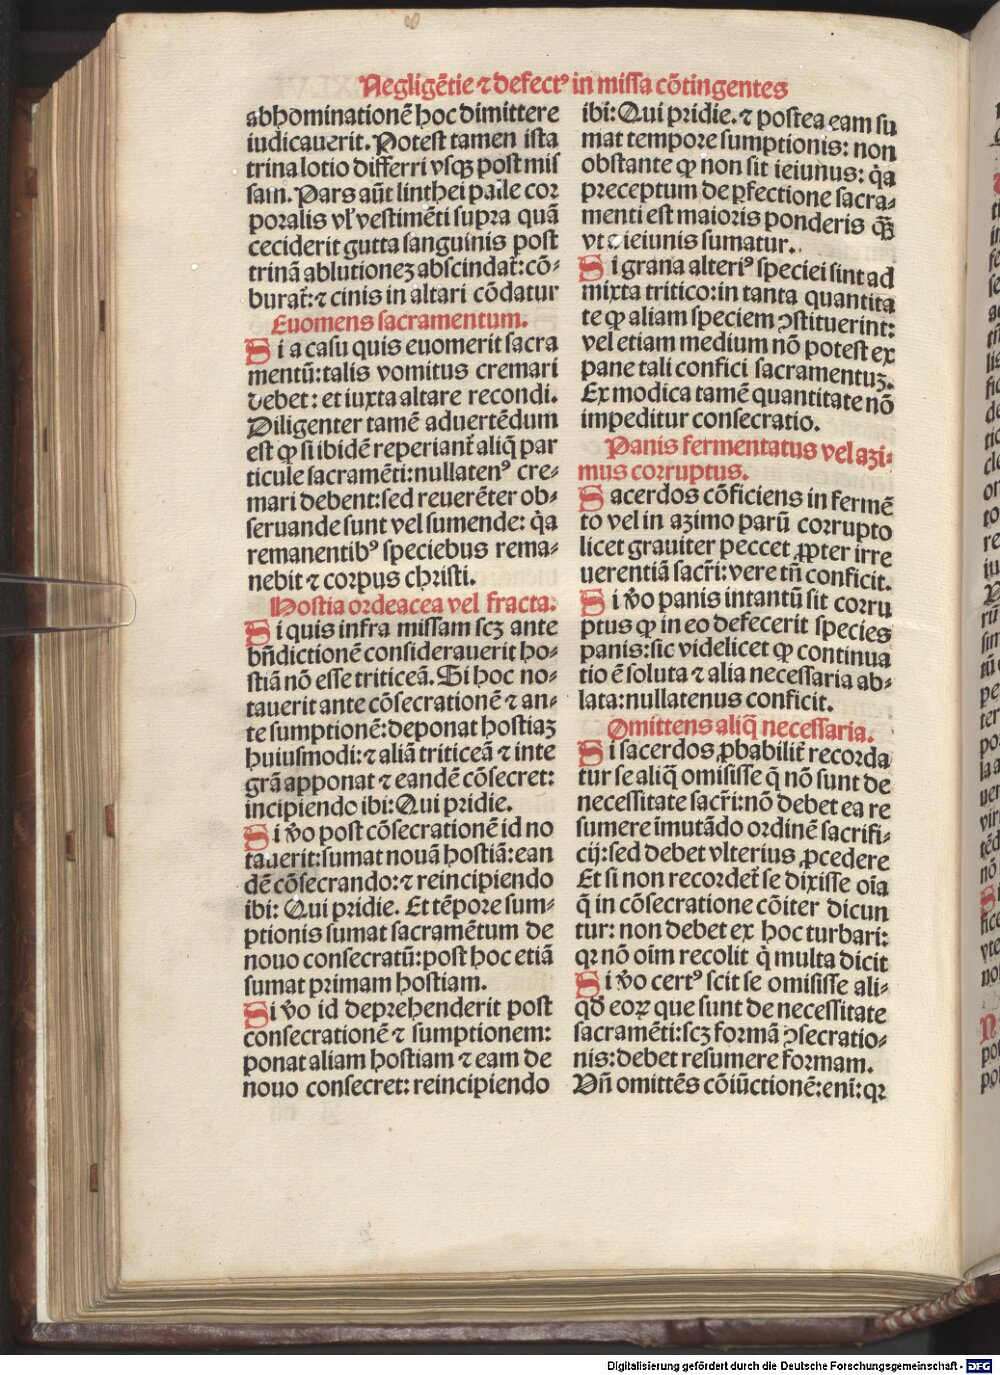 Negligẽtie ⁊ defectꝰ in missa cõtingentes
abhominationẽ hoc dimittere
iudicauerit. Potest tamen ista
trina lotio differri vsqꝫ post mis
sam. Pars aũt linthei palle cor
poralis vĺ vestimẽti supra quã
ceciderit gutta sanguinis post
trinã ablutioneꝫ abscindat̃: cõ⸗
burat̃: ⁊ cinis in altari cõdatur
Euomens sacramentum.
Si a casu quis euomerit sacra
mentũ: talis vomitus cremari
debet: et iuxta altare recondi.
Diligenter tamẽ aduertẽdum
est ꝙ si ibidẽ reperiant̃ aliq̃ par
ticule sacramẽti: nullatenꝰ cre⸗
mari debent: sed reuerẽter ob⸗
seruande sunt vel sumende: q̃a
remanentibꝰ speciebus rema⸗
nebit ⁊ corpus christi.
Hostia ordeacea vel fracta.
Si quis infra missam scꝫ ante
bñdictionẽ considerauerit ho⸗
stiã nõ esse triticeã. Si hoc no⸗
tauerit ante cõsecrationẽ ⁊ an⸗
te sumptionẽ: deponat hostiaꝫ
huiusmodi: ⁊ aliã triticeã ⁊ inte
grã apponat ⁊ eandẽ cõsecret:
incipiendo ibi: Qui pridie.
Si v̾o post cõsecrationẽ id no
tauerit: sumat nouã hostiã: ean
dẽ cõsecrando: ⁊ reincipiendo
ibi: Qui pridie. Et tẽpore sum⸗
ptionis sumat sacramẽtum de
nouo consecratũ: post hoc etiã
sumat primam hostiam.
Si v̾o id deprehenderit post
consecrationẽ ⁊ sumptionem:
ponat aliam hostiam ⁊ eam de
nouo consecret: reincipiendo
ibi: Qui pridie. ⁊ postea eam su
mat tempore sumptionis: non
obstante ꝙ non sit ieiunus: q̃a
preceptum de ꝑfectione sacra⸗
menti est maioris ponderis q̃ꝫ
vt a ieiunis sumatur.
Si grana alteriꝰ speciei sint ad
mixta tritico: in tanta quantita
te ꝙ aliam speciem ꝯstituerint:
vel etiam medium nõ potest ex
pane tali confici sacramentuꝫ.
Ex modica tamẽ quantitate nõ
impeditur consecratio.
Panis fermentatus vel azi⸗
mus corruptus.
Sacerdos cõficiens in fermẽ
to vel in azimo parũ corrupto
licet grauiter peccet ꝓpter irre
uerentiã sacr̃i: vere tñ conficit.
Si v̾o panis intantũ sit corru
ptus ꝙ in eo defecerit species
panis: sic videlicet ꝙ continua
tio ẽ soluta ⁊ alia necessaria ab⸗
lata: nullatenus conficit.
Omittens aliq̃ necessaria.
Si sacerdos ꝓbabilit̃ recorda
tur se aliq̃ omisisse q̃ nõ sunt de
necessitate sacr̃i: nõ debet ea re
sumere ĩmutãdo ordinẽ sacrifi⸗
cij: sed debet vlterius ꝓcedere
Et si non recordet̃ se dixisse oĩa
q̃ in cõsecratione cõiter dicun
tur: non debet ex hoc turbari:
qꝛ nõ oĩm recolit q̃ multa dicit
Si v̾o certꝰ scit se omisisse ali⸗
qđ eoꝝ que sunt de necessitate
sacramẽti: scꝫ formã ꝯsecratio⸗
nis: debet resumere formam.
Vñ omittẽs cõiũctionẽ: eni: qꝛ
Digitalisierung gefördert durch die Deutsche Forschungsgemeinschaft - DFG